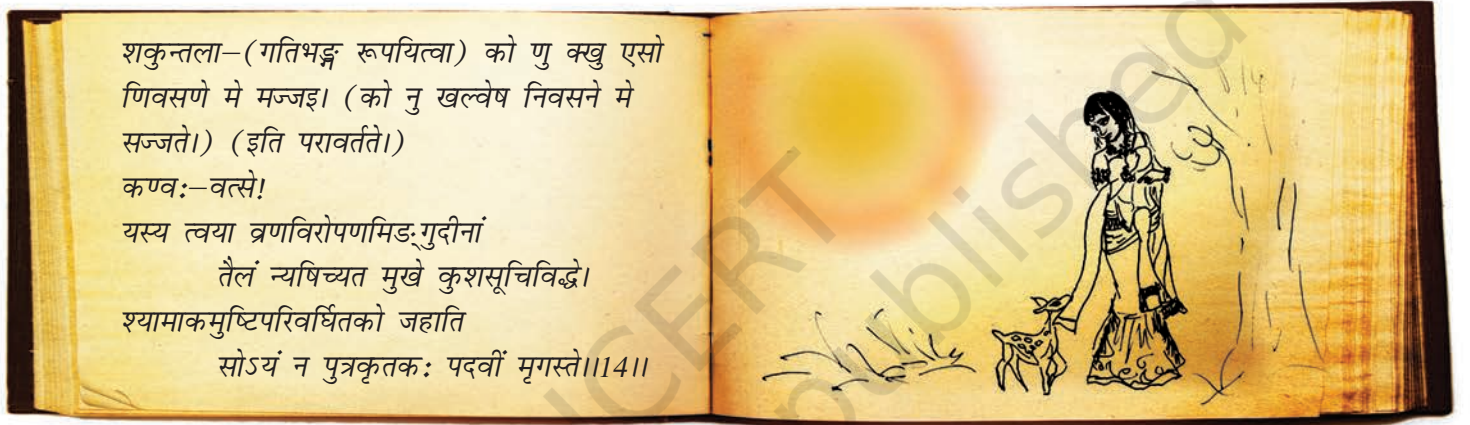 शकुन्तला–(गतिभङ्गं रूपयित्वा) को णु क्खु एसो
णिवसणे मे मज्जइ। (को नु खल्वेष निवसने मे
सज्जते।) (इति परावर्तते।)
कण्व:–वत्से!
यस्य त्वया व्रणविरोपणमिङ्गुदीनां
तैलं न्यषिच्यत मुखे कुशसूचिविद्धे।
श्यामाकमुष्टिपरिवर्धितको जहाति
सोऽयं न पुत्रकृतक: पदवीं मृगस्ते।।14।।
NCERT
published